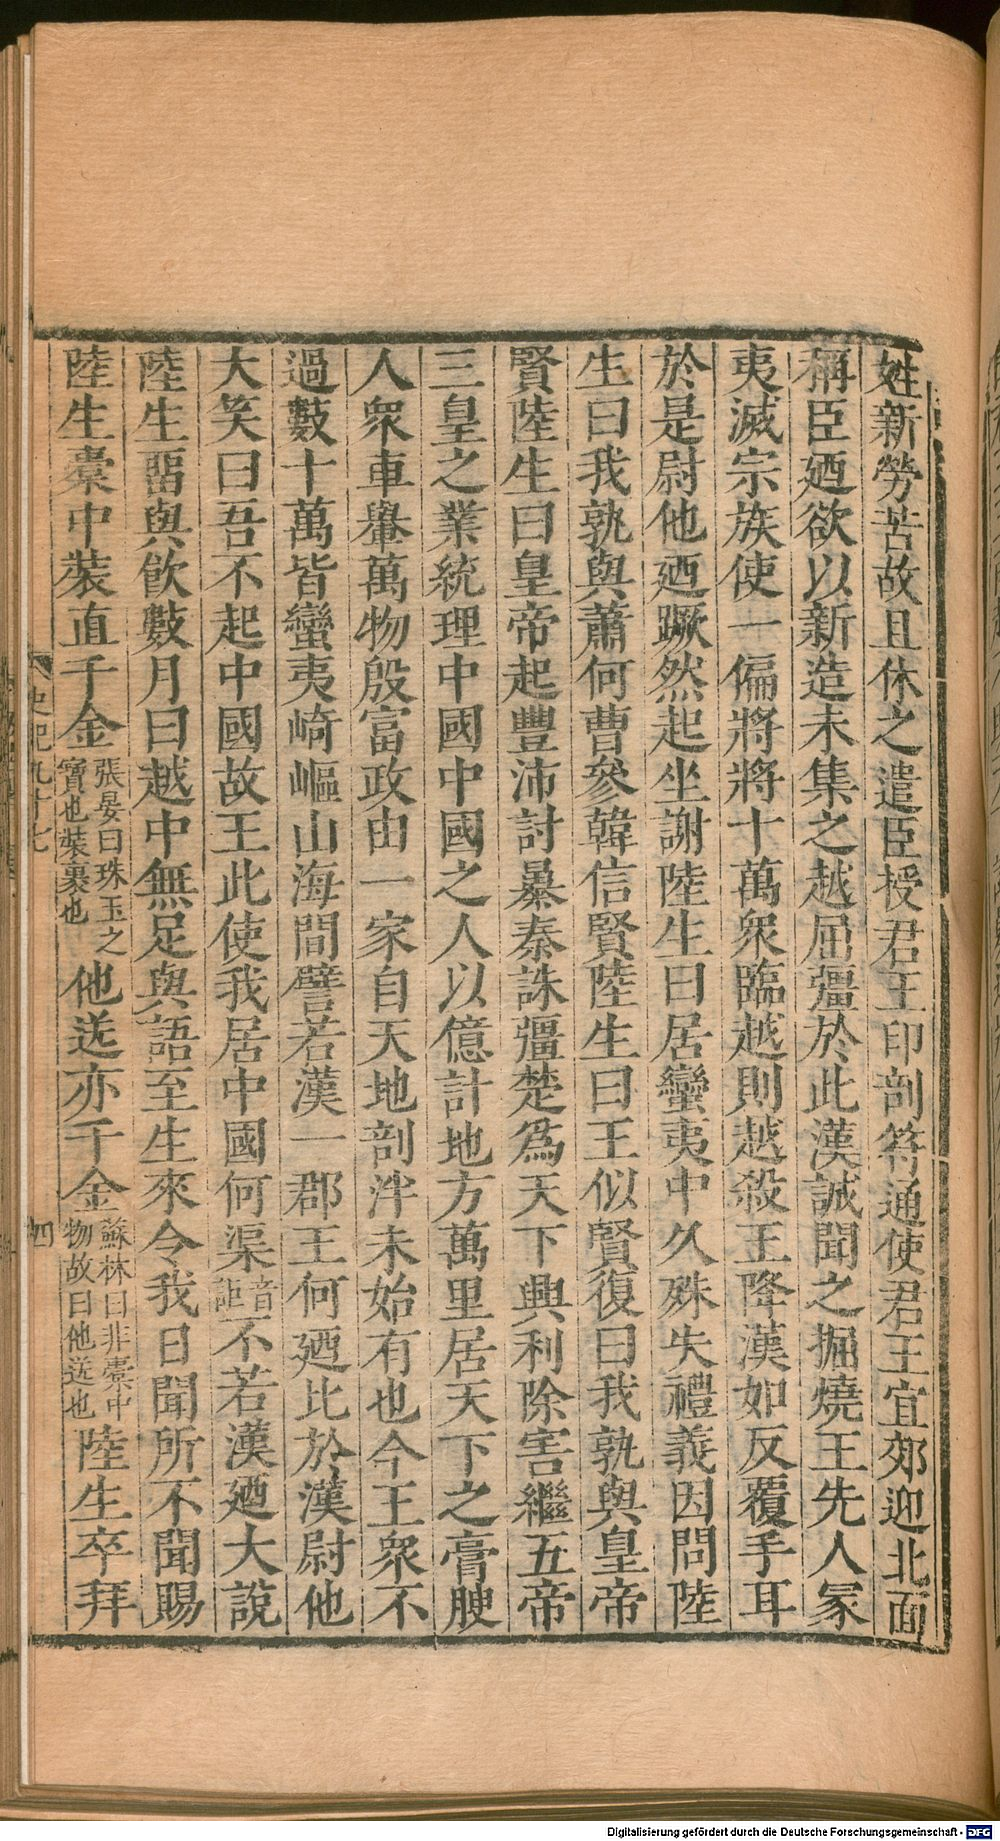 姓新勞苦故且休之遣臣授君王印剖符通使君王宜郊迎北面
稱臣廼欲以新造未集之越屈彊於此漢誠聞之掘燒王先人冢
夷滅宗族使一偏將將十萬衆臨越則越殺王降漢如反覆手耳
於是尉他廼蹶然起坐謝陸生曰居蠻夷中久殊失禮義因問陸
生曰我孰與蕭何曹參韓信賢陸生曰王似賢復曰我孰與皇帝
賢陸生曰皇帝起豐沛討暴秦誅彊楚爲天下興利除害繼五帝
三皇之業統理中國中國之人以億計地方萬里居天下之膏腴
人衆車轝萬物殷富政由一家自天地剖泮未始有也今王衆不
過數十萬皆蠻夷崎嶇山海間譬若漢一郡王何廼比於漢尉他
大笑曰吾不起中國故王此使我居中國何渠音詎不若漢廼大說
陸生畱與飮數月曰越中無足與語至生來令我日聞所不聞賜
陸生橐中裝直千金張晏曰珠玉之寶也裝裹也他送亦千金蘇林曰非橐中物故曰他送也陸生卒拜
史記九十七
四
Digitalisierung gefördert durch die Deutsche Forschungsgemeinschaft - DFG